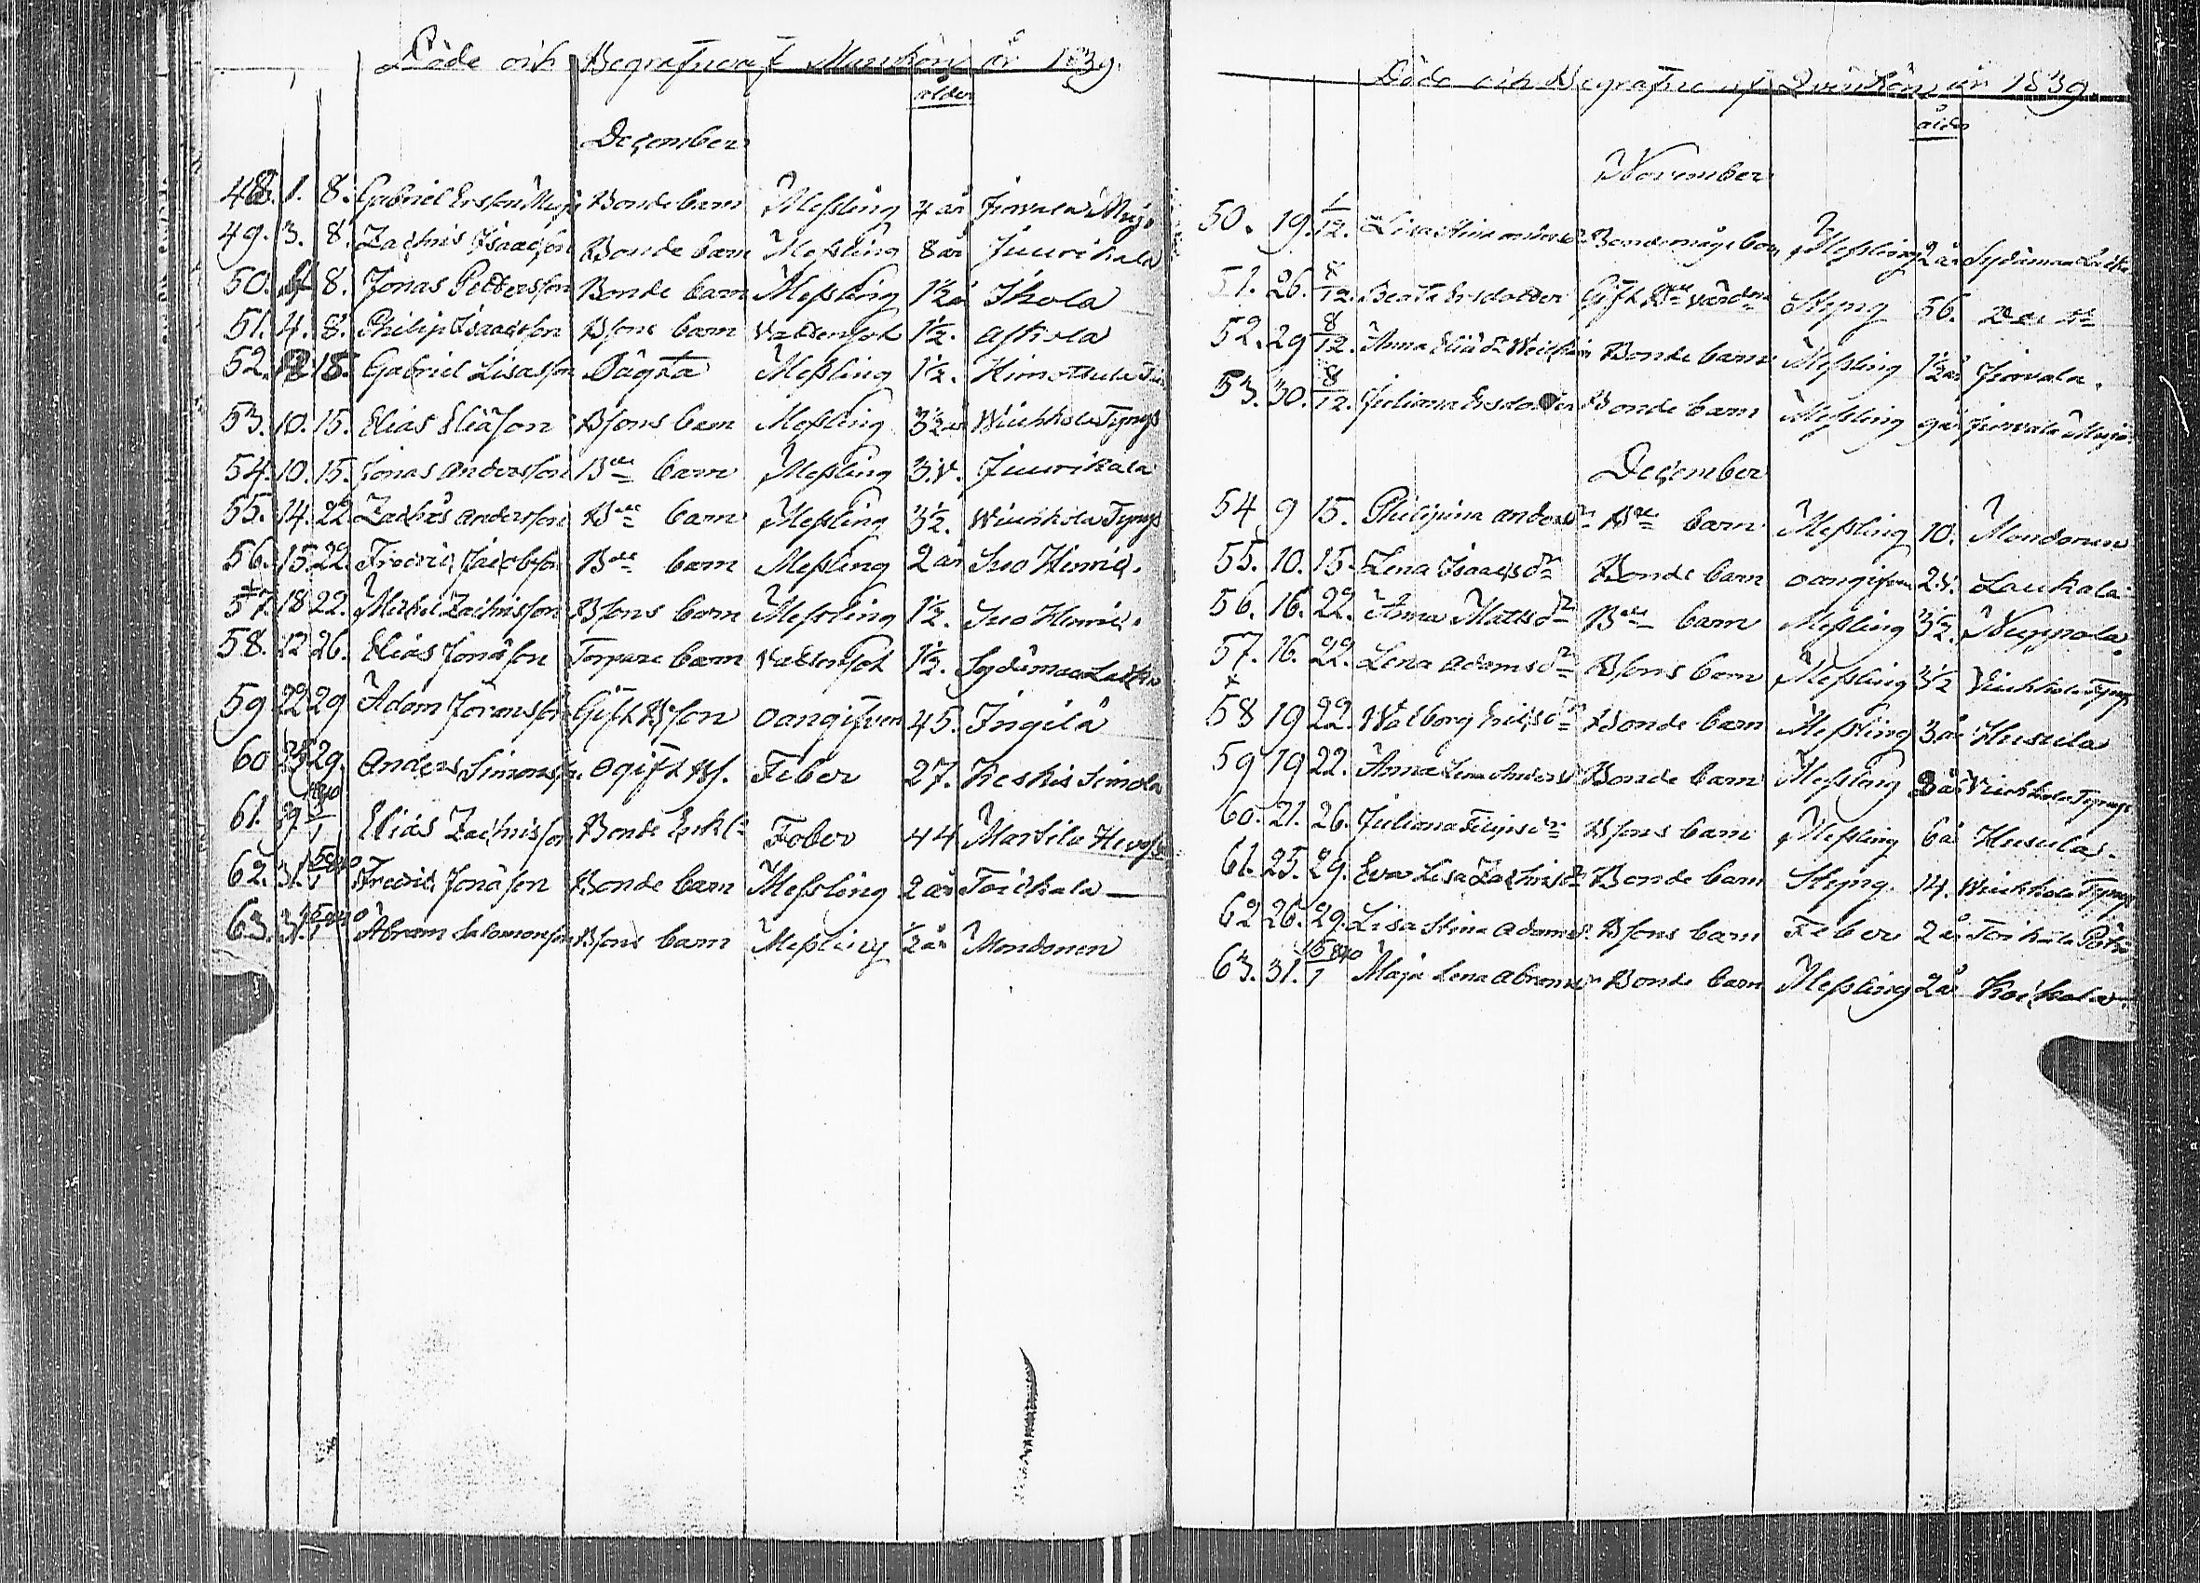 Döde och Begrafne af Mankön år 1839.
ålder
December
48. 1. 8. Gabriel Ersson Bonde barn Meßling 4 år
49. 3. 8. Zachris Isaacsson Bonde barn Meßling 8 år Juurikala
50. 4 8. Jonas Pettersson Bonde barn Meßling 1½ å Ihola
51. 4. 8. Philip Isaacsson Bsons barn Vattensot 1½. Askola
52. 15. Gabriel Lisasson Oägta Meßling 1½.
53. 10. 15. Elias Eliäson Bsons barn Meßling 3½ år Wiichkola Tyngs
54. 10. 15. Jonas Andersson Bde barn Meßling 3. v. Juurikala
55. 14. 22 Zachris Andersson Bde barn Meßling 3½. Wiichkola Tyngs
56. 15. 22. Fredric Jacobsson Bde barn Meßling 2 år Suo Hinric.
57. 18 22. Michel Zachrisson Bsons barn Meßling 1½. Suo Hinric.
58. 12 26. Eliäs Jonäson Torpare barn Vattensot 1½. Sydänmaa
59 22 29 Adam Göransson Gift Bson oangifven 45. Ingilä
60 29. Anders Simonss. ogift Bs. Feber 27. Keskis Simola
61. Eliäs Zachrisson Bonde Enkl. Feber 44 Martila
62. 31. 5/1 840 Fredric Jonäson Bonde barn Meßling 2 år Toickala
63. 31. 5/1 840 Abram Salomonson Bsons barn Meßling ½ år Mondonen
Döde och Begrafne af Qvinkön år 1839.
ålder
November
50. 19. 1/12. Lisa Stina Meßling 2 år Sydänmaa
51. 26. 8/12. Beata Ersdotter Gift Styng 56.
52. 29 8/12. Anna Bonde barn Meßling 1½ år
53. 30. 8/12. Juliana Ersdotter Bonde barn Meßling 9 år
December
54 9 15. Philipina Andersd:r Bde barn Meßling 10. Mondonen
55. 10. 15. Lena Isaacsd:r Bonde barn oangifven 2. v. Laukala
56. 16. 22. Anna Mattsd:r Bde barn Meßling 3½. Nuppola.
57. 16. 22. Lena Adamsd:r Bsons barn Meßling 3½ Wiichkola Tyngs
58 19 22. Walborg Ericsd:r Bonde barn Meßling 3 år Husula
59 19 22. Anna Lena Andersd. Bonde barn Meßling 3 år Wiichkola Tyngs
60. 21. 26. Juliana Filipsd:r Bsons barn Meßling 6 å Husula.
61. 25. 29. Eva Lisa Zachrisd:r Bonde barn Styng. 14. Wiichkola Tyngs
62 26. 29. Lisa Stina Adamsd. Bsons barn Feber 2 år Toikala
63. 31. 5/1 840 Maja Lena Abramsd:r Bonde barn Meßling 2 år